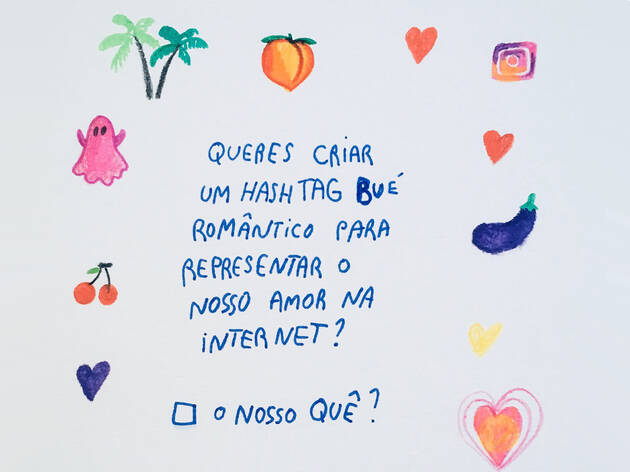 QUERES CRIAR
UM HASHTAG BUÉ
ROMÂNTICO PARA
REPRESENTAR O
NOSSO AMOR NA
INTERNET?
O NOSSO QUÊ?